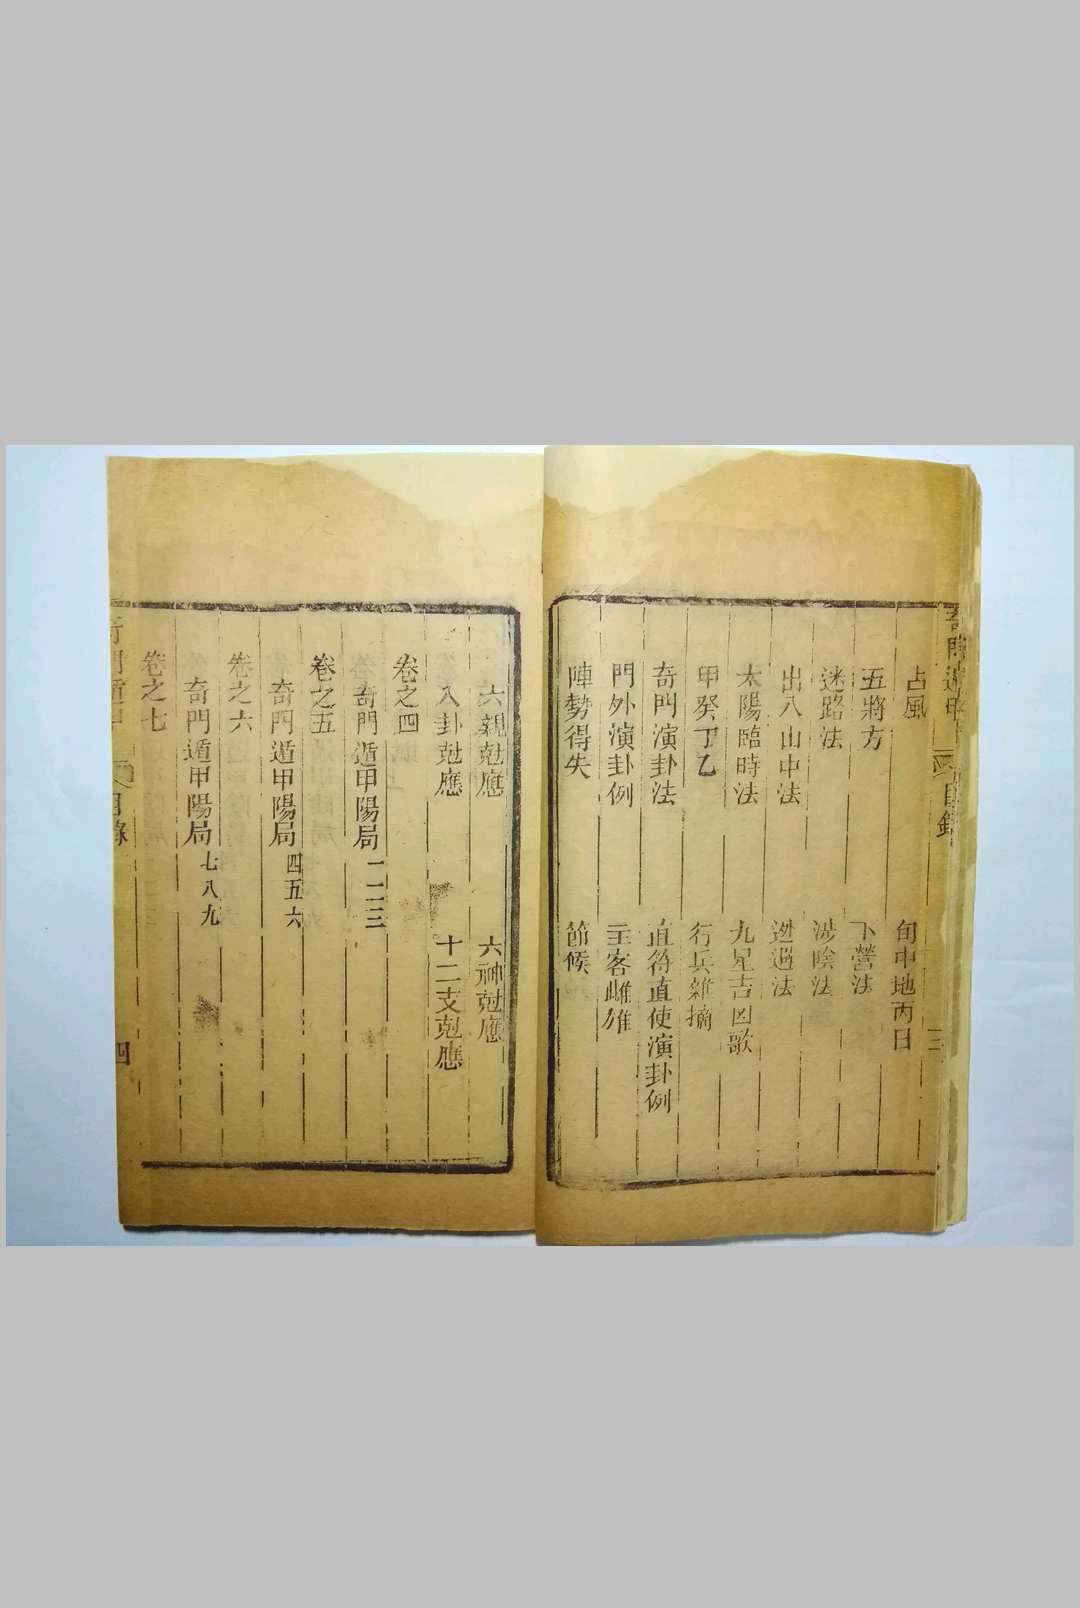 占風
旬中地丙日
五將方
下營法
迷路法
涉陰法
出八山中法
迯過法
太陽臨時法
九星吉凶歌
甲癸丁乙
行兵雜摘
奇門演卦法
直符直使演卦例
門外演卦例
主客雌雄
陣勢得失
節候
目錄
三
六親尅應
六神尅應
八卦尅應
十二支尅應
卷之四
奇門遁甲陽局一二三
卷之五
奇門遁甲陽局四五六
卷之六
奇門遁甲陽局七八九
卷之七
奇門遁甲
目錄
四